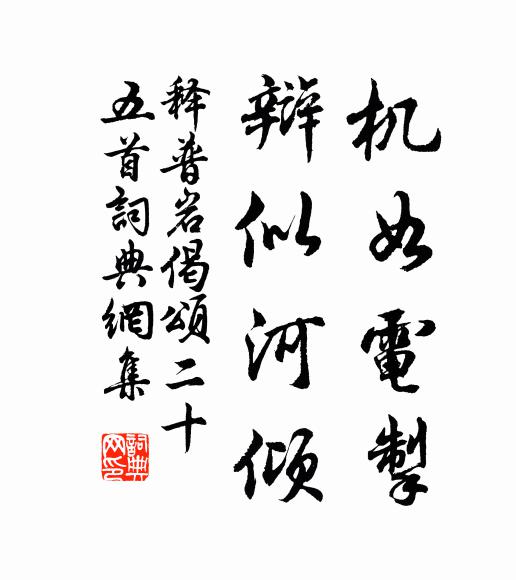 机如電掣
辯似河傾
释普岩偈頌二十
五首詞典網集
詞典
网印